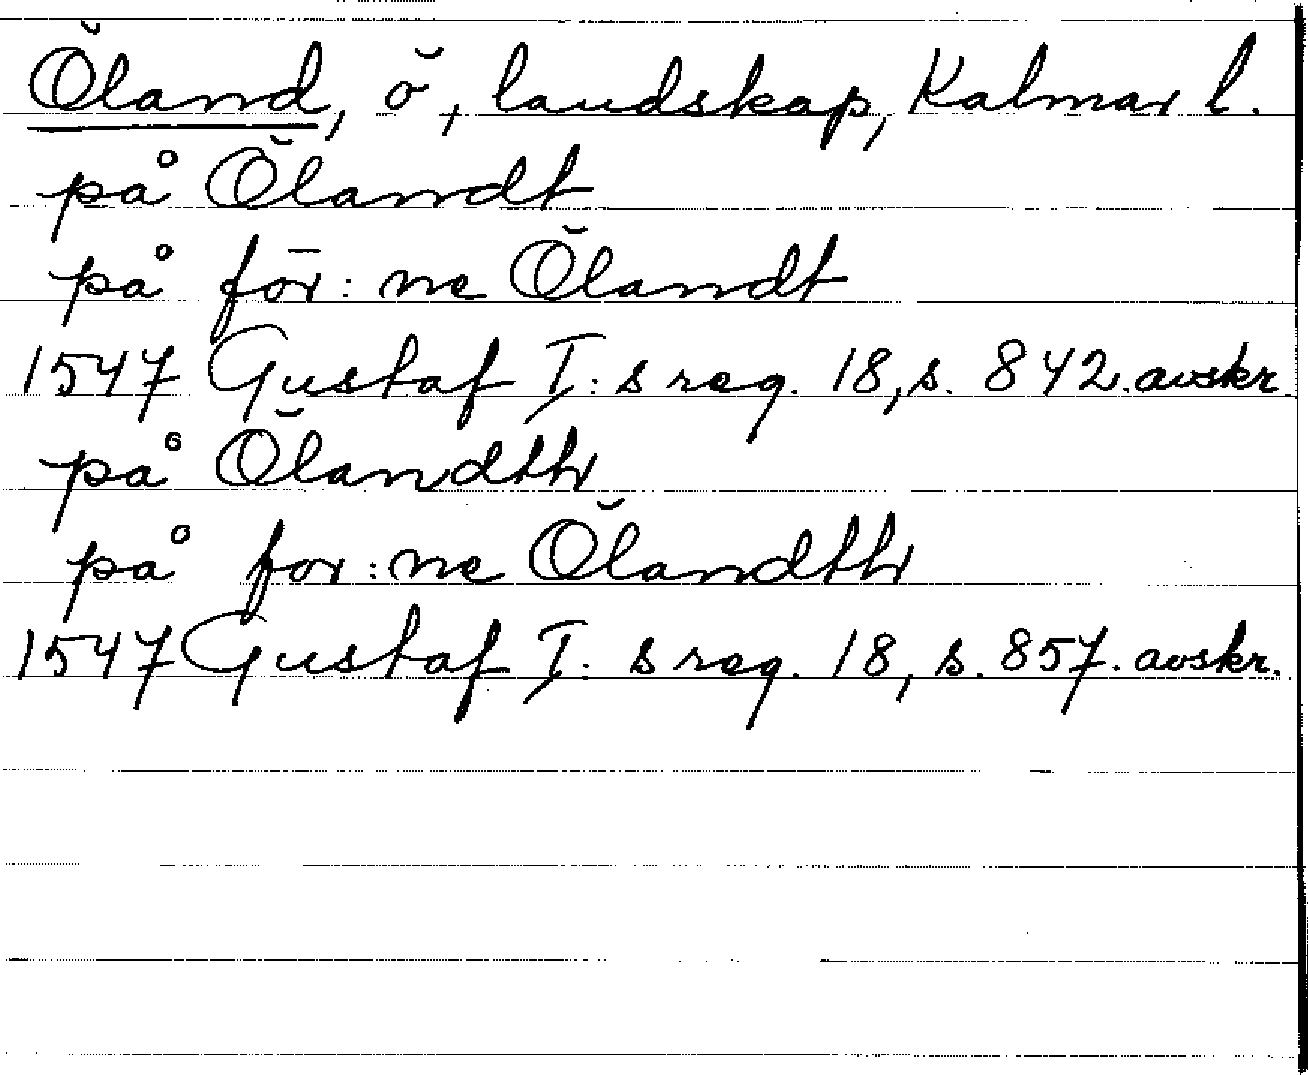 Öland, ö, landskap, Kalmar l.
på Ölandt
på för: ne Ölandt
1547 Gustaf I: s reg. 18, s. 842. avskr.
på Ölandth
på for: ne Ölandth
1547 Gustaf I: s reg. 18, s. 857. avskr.